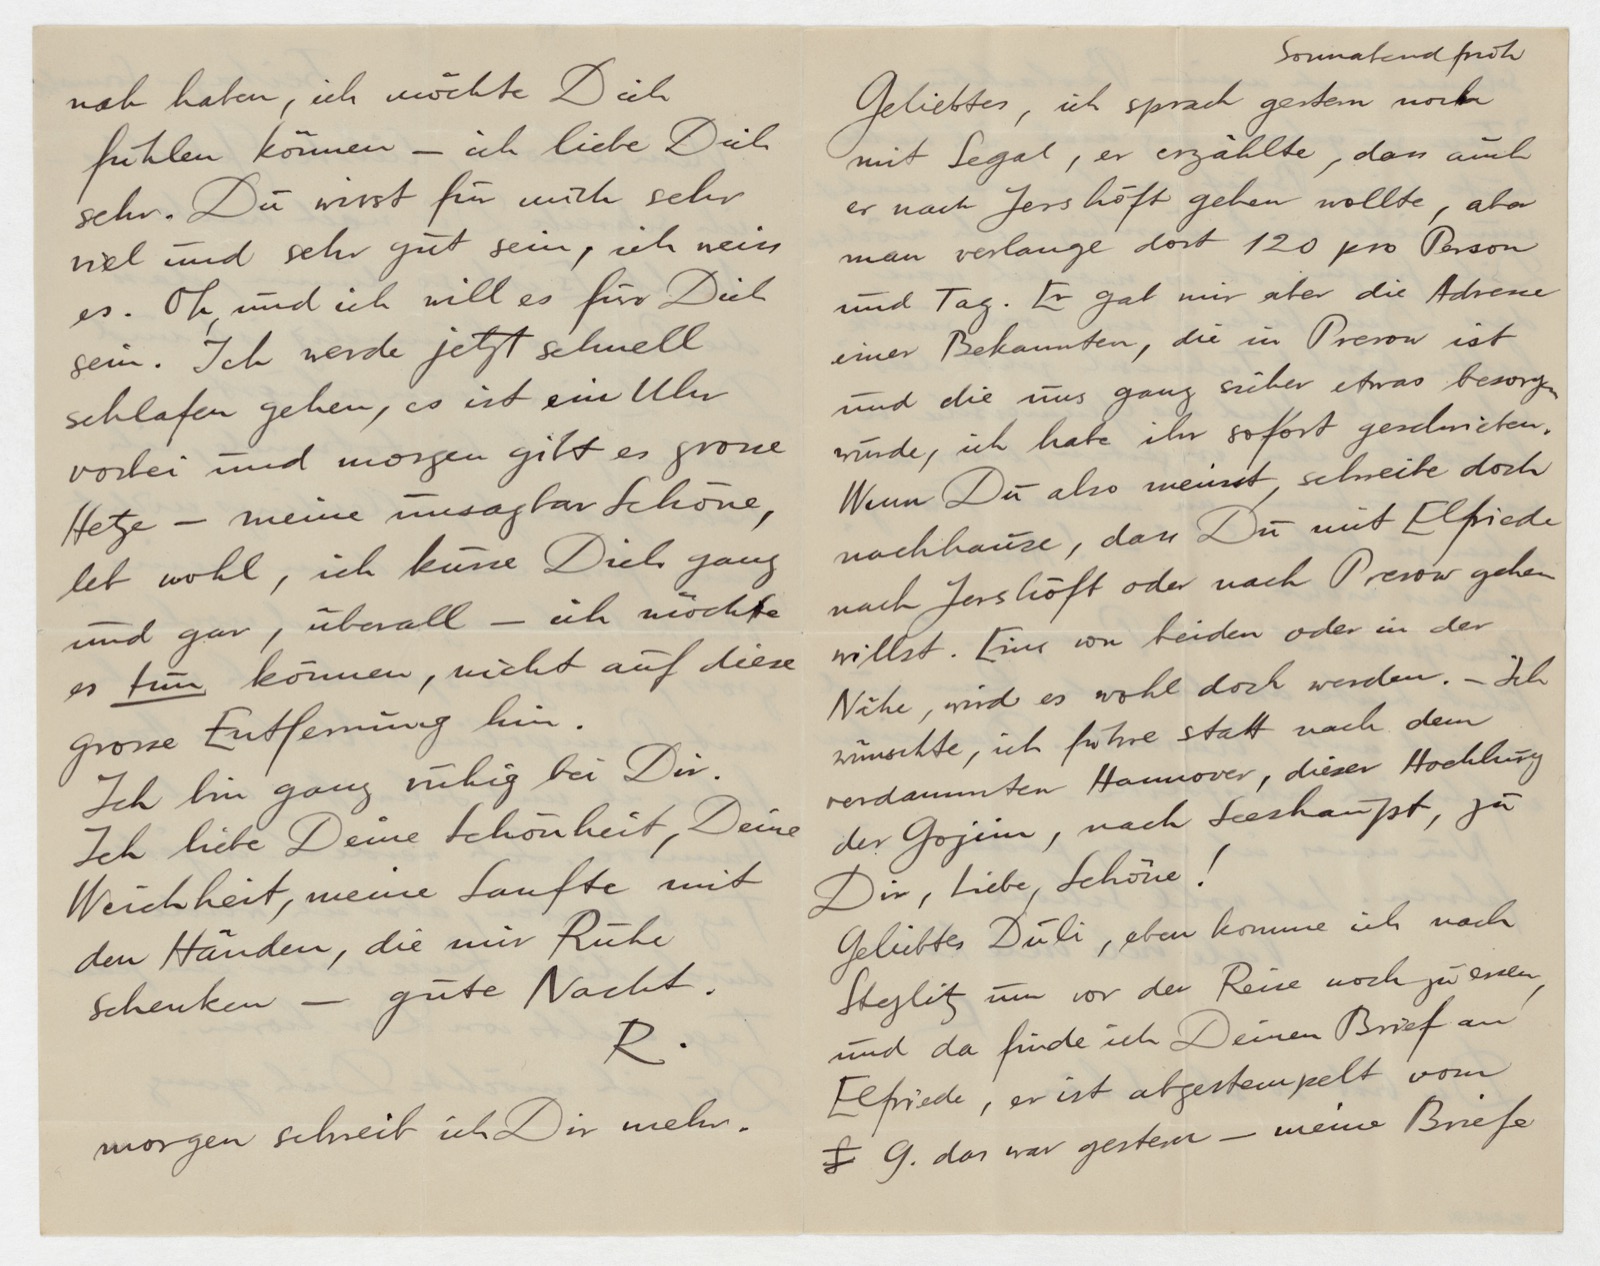 nah haben, ich möchte Dich
fühlen können — ich liebe Dich
sehr. Du wirst für mich sehr
viel und sehr gut sein, ich weiss
es. Oh, und ich will es für Dich
sein. Ich werde jetzt schnell
schlafen gehen, es ist ein Uhr
vorbei und morgen gibt es grosse
Hetze — meine unsagbar Schöne,
leb wohl, ich küsse Dich ganz
und gar, überall — ich möchte
es tun können, nicht auf diese
grosse Entfernung hin.
Ich bin ganz ruhig bei Dir.
Ich liebe Deine Schönheit, Deine
Weichheit, meine Sanfte mit
den Händen, die mir Ruhe
schenken — gute Nacht.
R.
morgen schreib ich Dir mehr.
Sonnabend früh
Geliebtes, ich sprach gestern noch
mit Segal, er erzählte, dass auch
er nach Jershöft gehen wollte, aber
man verlange dort 120 pro Person
und Tag. Er gab mir aber die Adresse
einer Bekannten, die in Prerow ist
und die uns ganz sicher etwas besorgen
würde, ich habe ihr sofort geschrieben.
Wenn Du also meinst, schreibe doch
nachhause, dass Du mit Elfriede
nach Jershöft oder nach Prerow gehen
willst. Eins von beiden oder in der
Nähe, wird es wohl doch werden. — Ich
wünschte, ich führe statt nach dem
verdammten Hannover, dieser Hochburg
der Gojim, nach Seeshaupt, zu
Dir, Liebe, Schöne!
Geliebtes Duli, eben komme ich nach
Steglitz um vor der Reise noch zu essen,
und da finde ich Deinen Brief an
Elfriede, er ist abgestempelt vom
9. das war gestern — meine Briefe